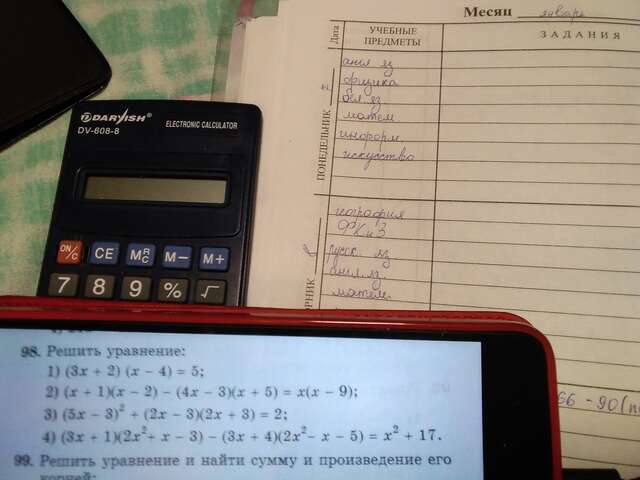 Месяц январь
Дата
УЧЕБНЫЕ
ПРЕДМЕТЫ
ЗАДАНИЯ
ПОНЕДЕЛЬНИК
англ яз
физика
бел яз
матем
информ.
искусство
география
ФК и З
русск яз
англ яз.
матем.
DARVISH
DV-608-8
ELECTRONIC CALCULATOR
ON/C CE MR/C M− M+
7 8 9 % √
98. Решить уравнение:
1) (3x + 2) (x − 4) = 5;
2) (x + 1)(x − 2) − (4x − 3)(x + 5) = x(x − 9);
3) (5x − 3)² + (2x − 3)(2x + 3) = 2;
4) (3x + 1)(2x² + x − 3) − (3x + 4)(2x² − x − 5) = x² + 17.
99. Решить уравнение и найти сумму и произведение его
корней:
66 - 90